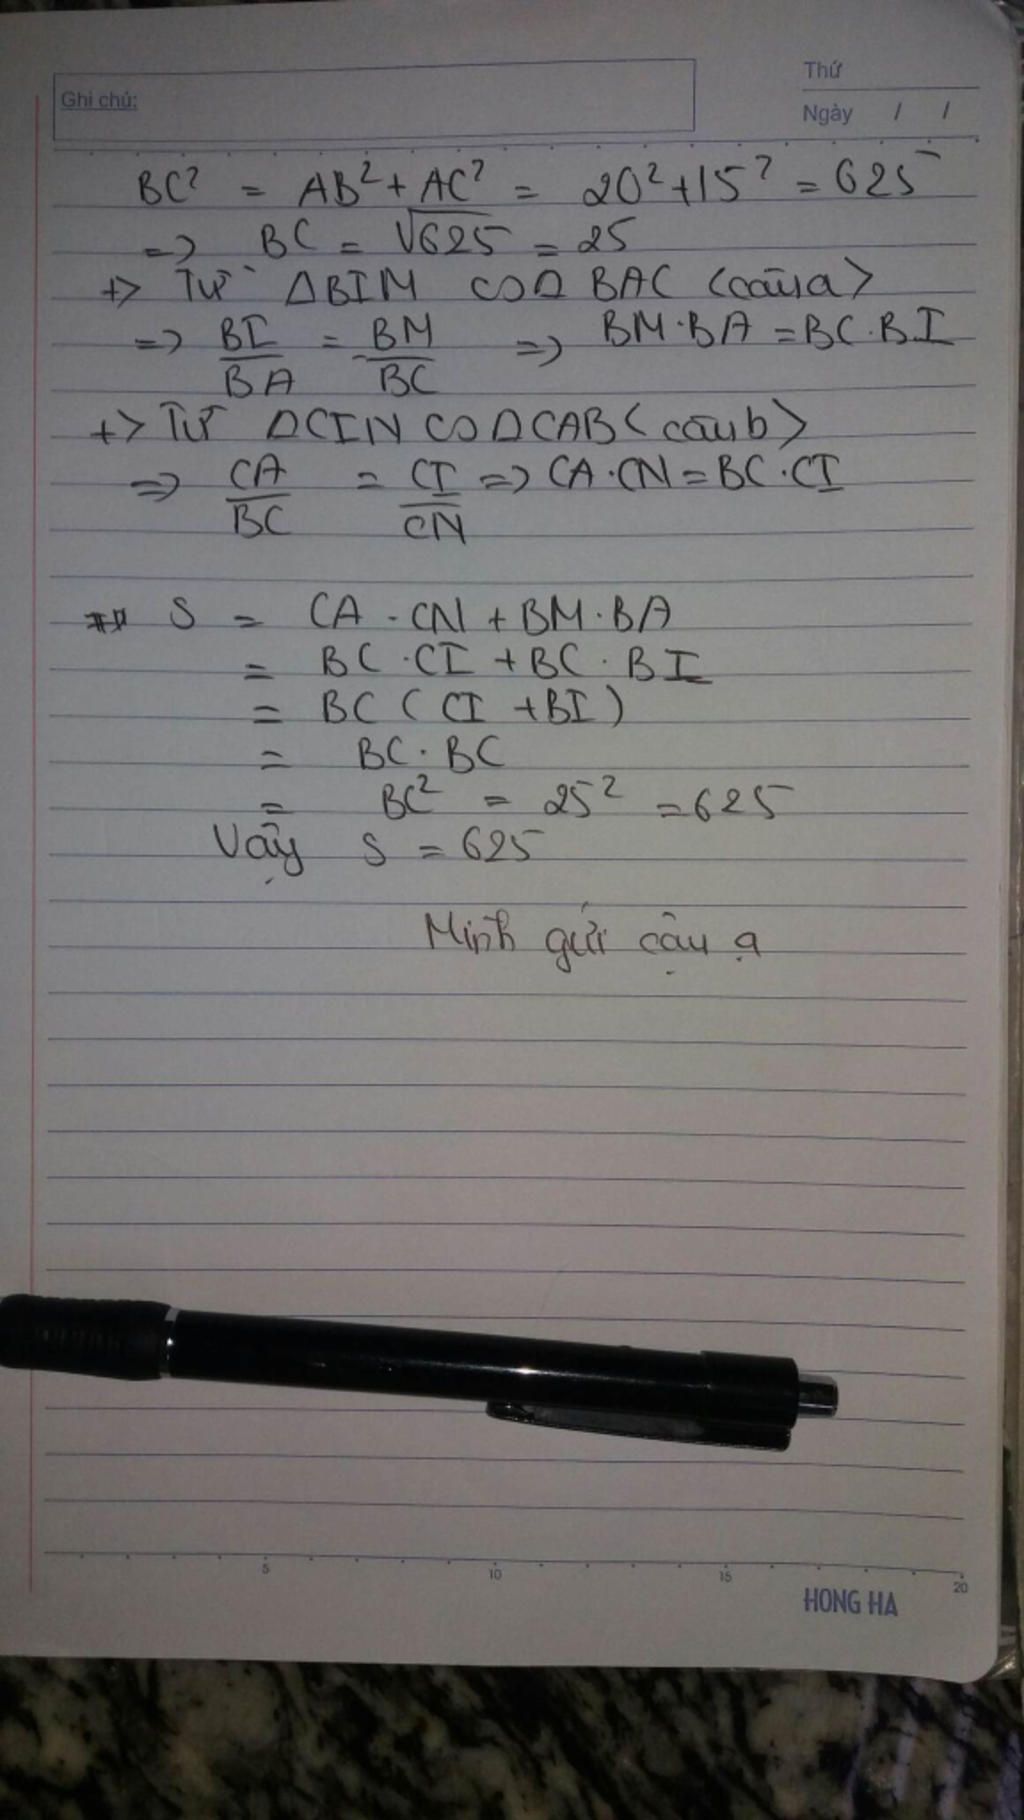 Ghi chú:
Thứ
Ngày / /
BC² = AB² + AC² = 20² + 15² = 625
=> BC = √625 = 25
+> Từ ΔBIM ∽ ΔBAC (câu a)
=> BI/BA = BM/BC => BM·BA = BC·BI
+> Từ ΔCIN ∽ ΔCAB (câu b)
=> CA/BC = CI/CN => CA·CN = BC·CI
S = CA·CN + BM·BA
= BC·CI + BC·BI
= BC (CI + BI)
= BC·BC
= BC² = 25² = 625
Vậy S = 625
Mình gửi cậu ạ
5 10 15 20
HONG HA